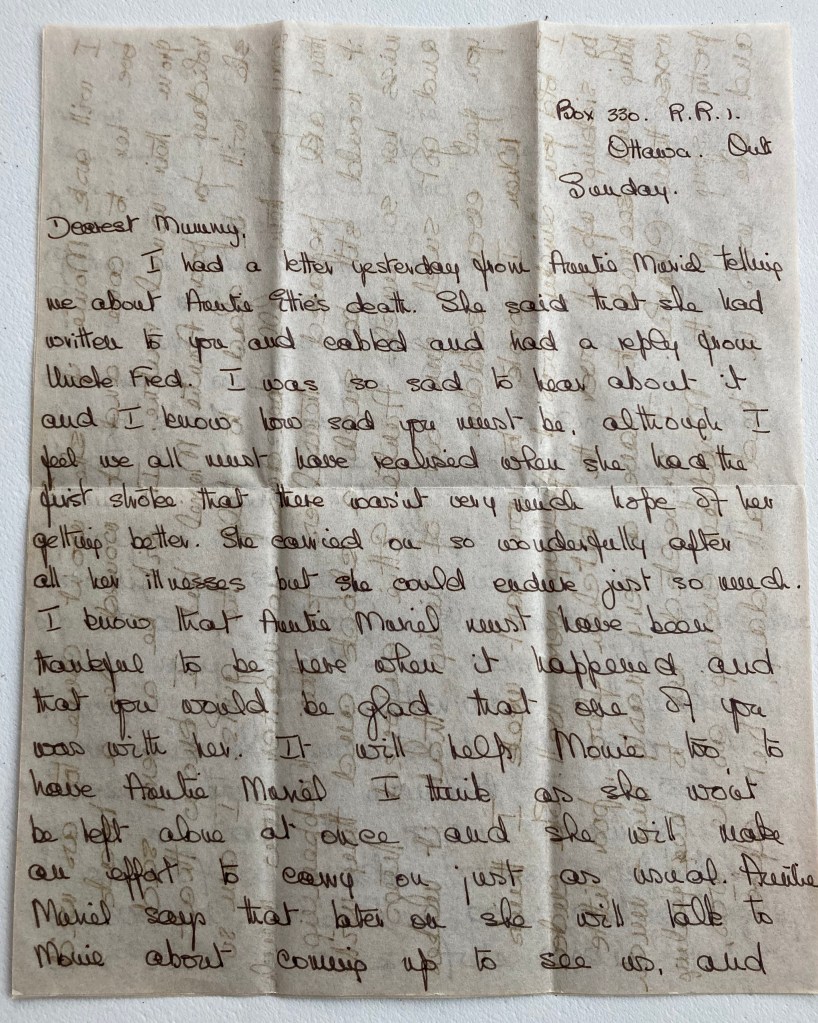 Box 330. R.R.1.
Ottawa. Ont
Sunday.
Dearest Mummy,
I had a letter yesterday from Auntie Muriel telling
me about Auntie Ettie's death. She said that she had
written to you and cabled and had a reply from
Uncle Fred. I was so sad to hear about it
and I know how sad you must be, although I
feel we all must have realised when she had the
first stroke that there wasn't very much hope of her
getting better. She carried on so wonderfully after
all her illnesses but she could endure just so much.
I know that Auntie Muriel must have been
thankful to be here when it happened and
that you would be glad that one of you
was with her. It will help Monie too, to
have Auntie Muriel I think as she won't
be left alone at once and she will make
an effort to carry on just as usual. Auntie
Muriel says that later on she will talk to
Monie about coming up to see us, and